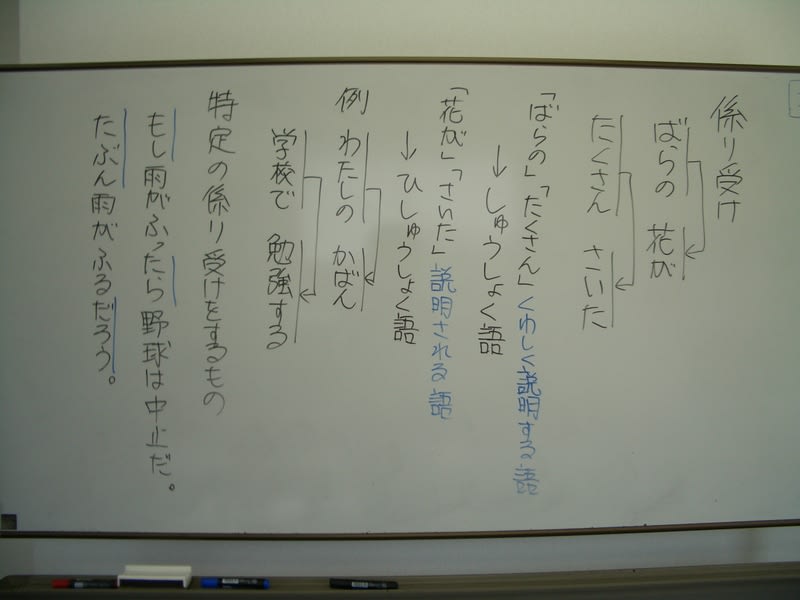 係り受け
ばらの 花が
たくさん さいた
「ばらの」「たくさん」くわしく説明する語
→しゅうしょく語
「花が」「さいた」説明される語
→ひしゅうしょく語
例 わたしの かばん
学校で 勉強する
特定の係り受けをするもの
もし雨がふったら野球は中止だ。
たぶん雨がふるだろう。